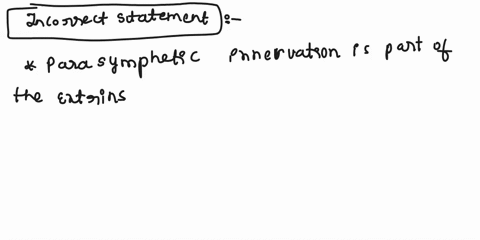 Incorrect statement :-
* Parasymphetic innervation is part of
the extrins